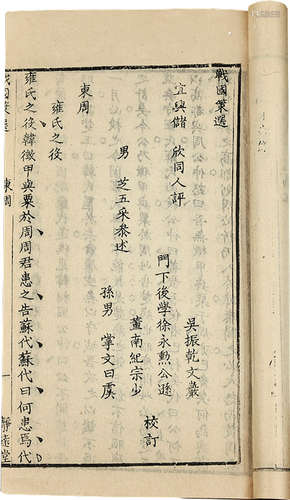 戰國策選
宜興儲 欣同人評
男 芝五采參述
吳振乾文巖
門下後學徐永勲公遜
董南紀宗少
孫男 掌文曰虞
校訂
東周
雍氏之後
雍氏之役韓徵甲與粟於周周君患之告蘇代蘇代曰何患焉代
戰國策選 東周 一 靜遠堂